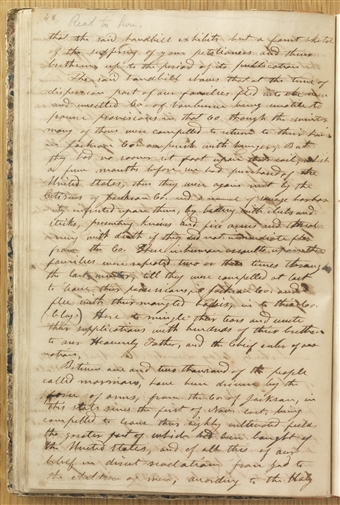 28
that the said handbill exhibits but a faint sketch
of the sufferings of your petitioners and their
brethren up to the period of its publication
The said handbill shows that at the time of
dispersion part of our families fled to the new
and unsettled co of Vanburen being unable to
procure provisions in that co though the winter
many of them were compelled to return to their
in Jackson co or perish with hunger. But
they had no sooner set foot upon that soil, which
a few months before we had purchased of the
United States, than they were again met by the
citizens of Jackson co and a renewal of savage barbar
ity inflicted upon these, by beating with clubs and
sticks, presenting knives and fire arms and threat
ening with death if they did not immediately flee
from the co. These inhuman assaults upon these
families were repeated two or three times through
the last winter, till they were compelled at last
to leave their possessions, in Jackson co. and
flee with their mangled bodies, in to this co.
(Clay) Here to mingle their tears and unite
their supplications with hundreds of their brethren
to our Heavenly Father, and the chief ruler of our
nation,
Between one and two thousand of the people
called mormons, have been driven by the
force of arms, from the co of Jackson, in
this State since the first of Nov. last, being
compelled to leave their highly cultivated fields
the greater part of which had been bought of
the United States, and of all this of our
belief in direct revelation from God to
the children of men, according to the Holy